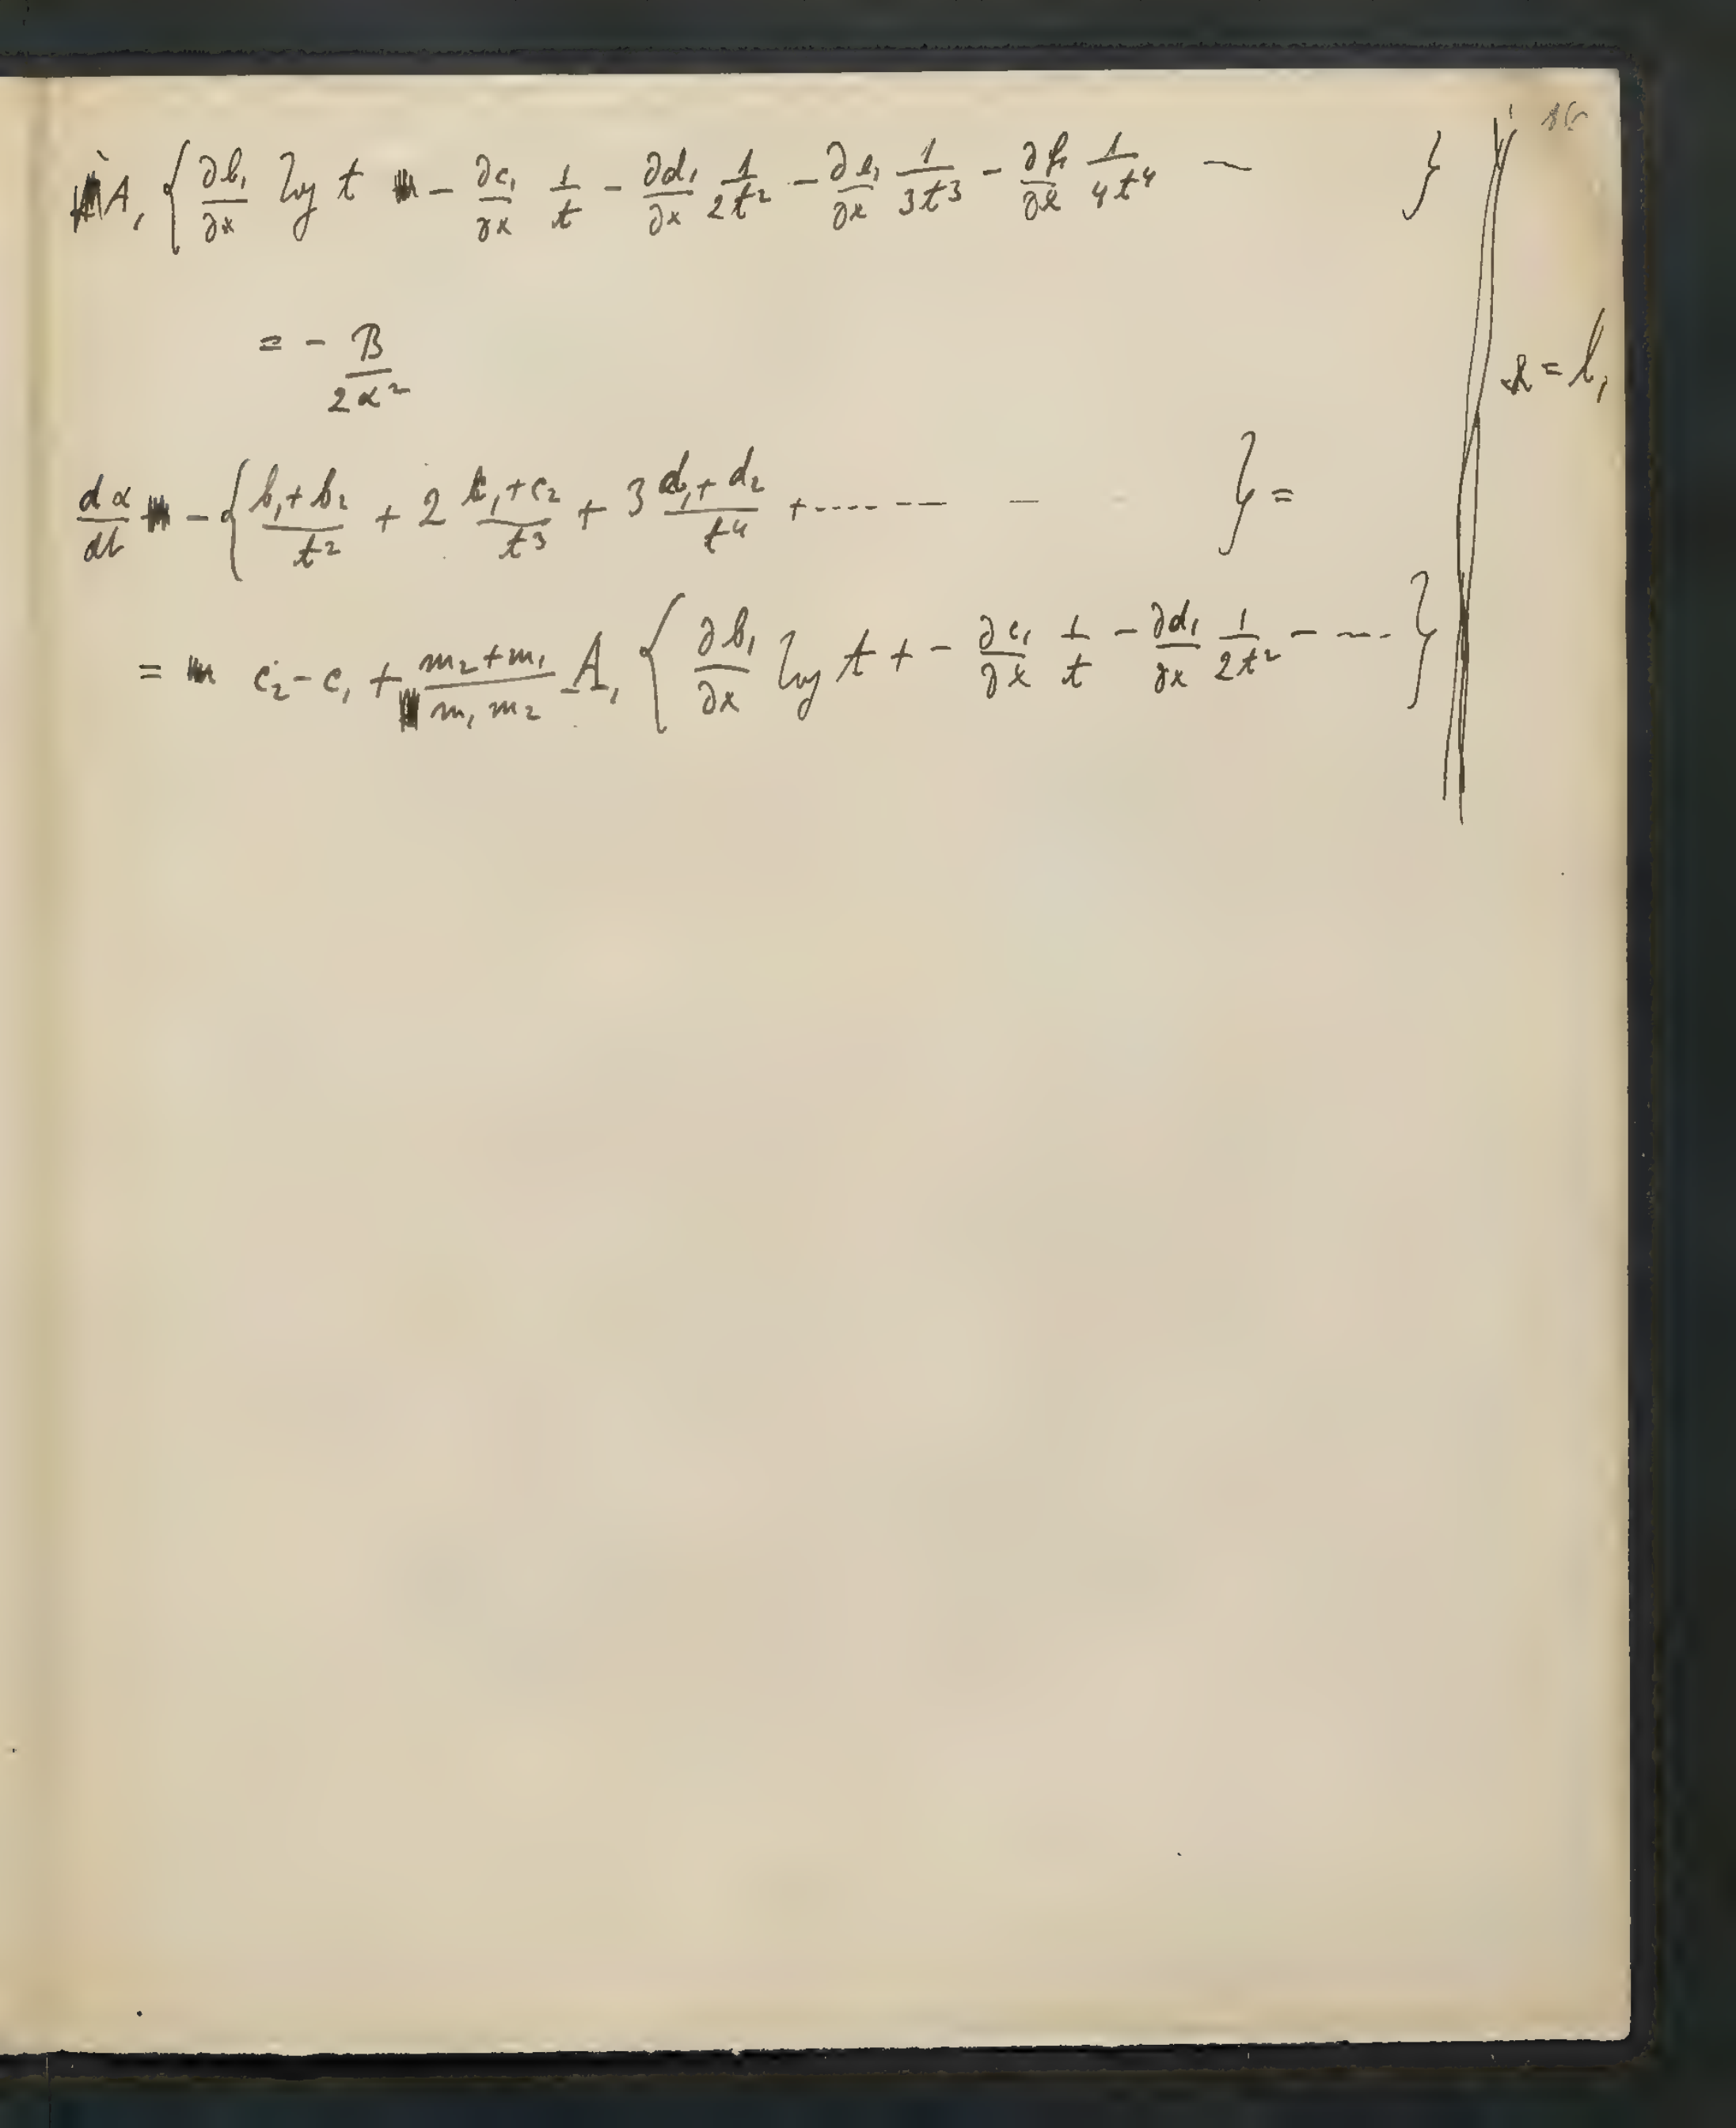 A₁ { ∂b₁/∂x log t − ∂c₁/∂x 1/t − ∂d₁/∂x 1/2t² − ∂e₁/∂x 1/3t³ − ∂f₁/∂x 1/4t⁴ — }
= − B/2α²
= b₁
dα/dt − { b₁+b₂/t² + 2 c₁+c₂/t³ + 3 d₁+d₂/t⁴ + ..... — — — } =
= c₂ − c₁ + m₂+m₁/m₁ m₂ A₁ { ∂b₁/∂x log t + − ∂c₁/∂x 1/t − ∂d₁/∂x 1/2t² − –--- }